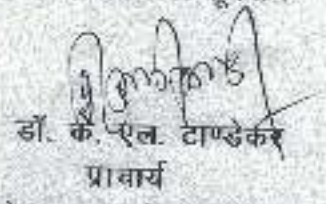 डॉ. के. एल. टाण्डेकर
प्राचार्य